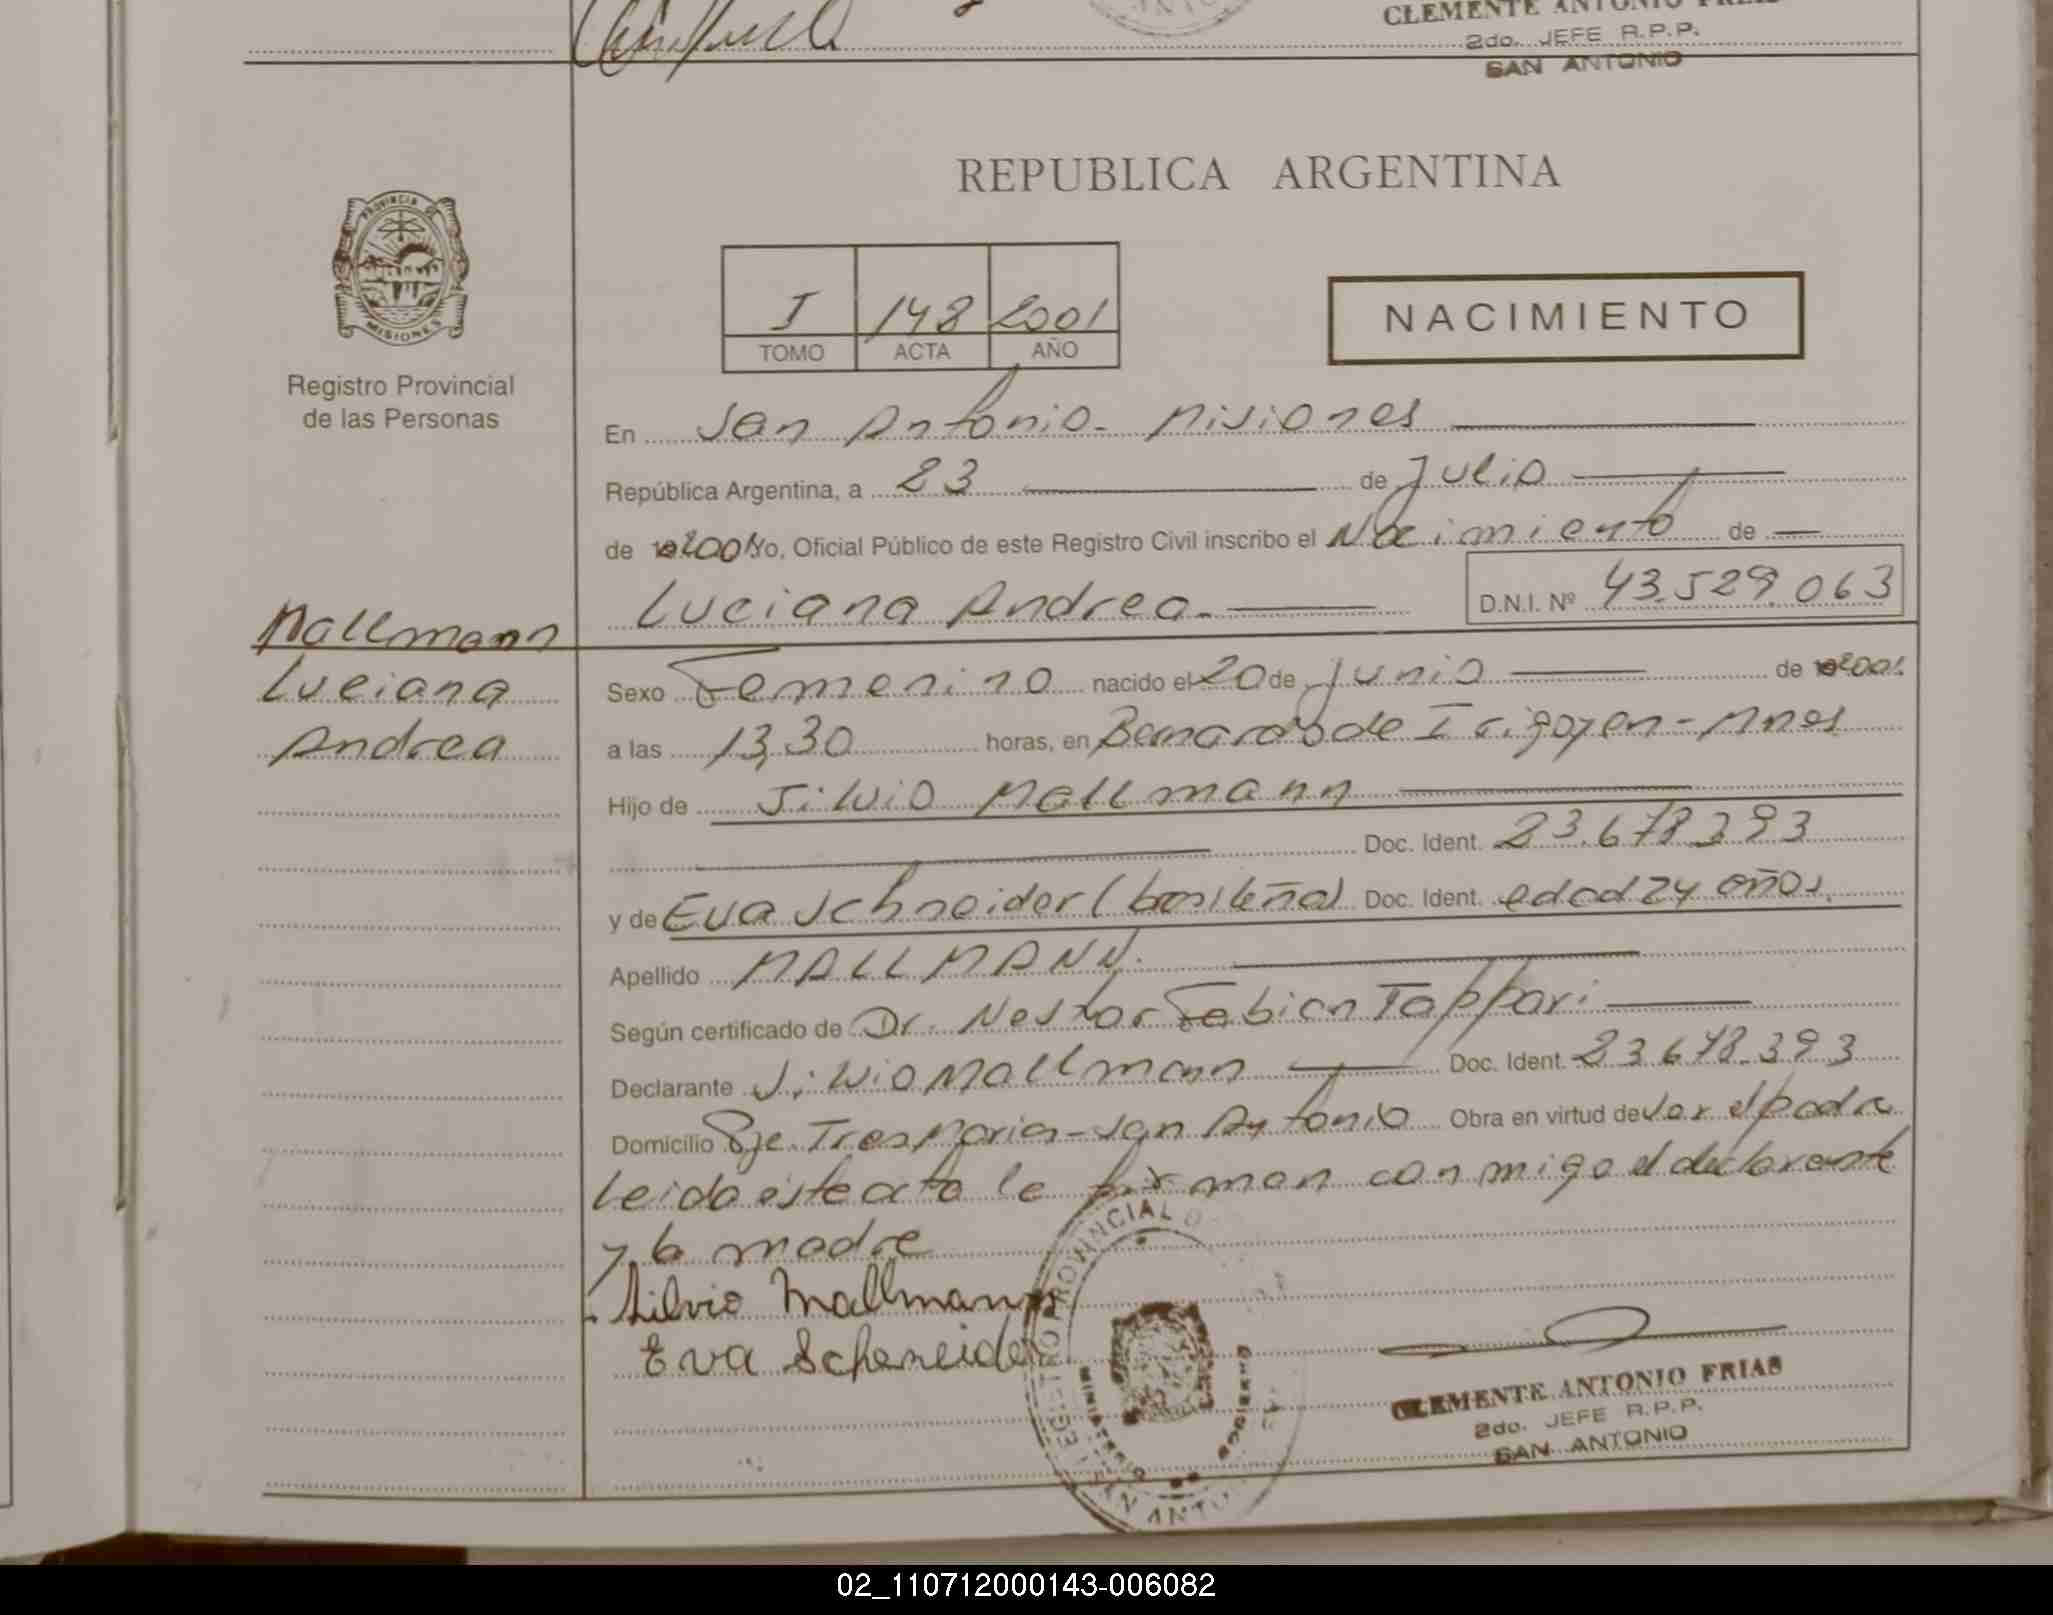 CLEMENTE ANTONIO FRIAS
2do. JEFE R.P.P.
SAN ANTONIO
REPUBLICA ARGENTINA
PROVINCIA DE
MISIONES
Registro Provincial
de las Personas
I 148 2001
TOMO ACTA AÑO
NACIMIENTO
En San Antonio - Misiones
República Argentina, a 23 de Julio
de 2001 Yo, Oficial Público de este Registro Civil inscribo el Nacimiento de
Luciana Andrea. D.N.I. Nº 43.529.063
Mallmann
Luciana
Andrea
Sexo Femenino nacido el 20 de Junio de 2001.
a las 13,30 horas, en Bernardo de Irigoyen - Mnes
Hijo de Silvio Mallmann
Doc. Ident. 23.678.393
y de Eva Schneider (brasileña) Doc. Ident. edad 24 años.
Apellido MALLMANN.
Según certificado de Dr. Nestor Fabian Tappari
Declarante Silvio Mallmann Doc. Ident. 23678.393
Domicilio Pje. Tres Marias - San Antonio Obra en virtud de ser el padre
Leida este acta la firman conmigo el declarante
y la madre
Silvio Mallmann
Eva Scheneider
CLEMENTE ANTONIO FRIAS
2do. JEFE R.P.P.
SAN ANTONIO
02_110712000143-006082